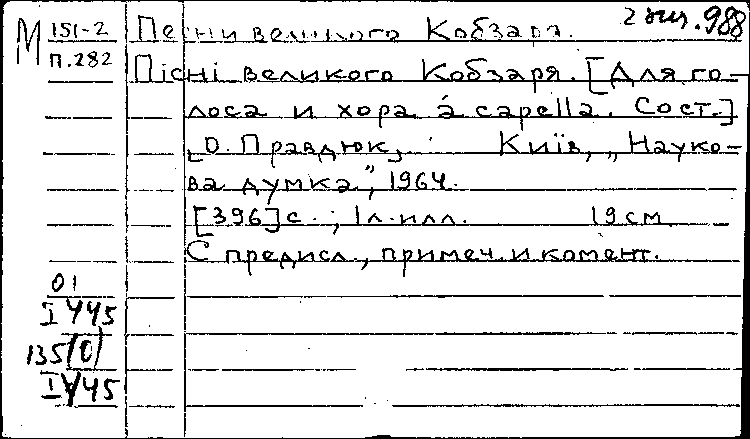 М 151-2 Песни великого Кобзаря. 2 экз. 988
П.282 Пісні великого Кобзаря. [Для го-
лоса и хора á capella. Сост.]
[О. Правдюк, Київ, „Науко-
ва думка", 1964.
[396] с. ; 1 л. илл. 19 см
С предисл., примеч. и комент.
01
I 445
135(0)
I 445